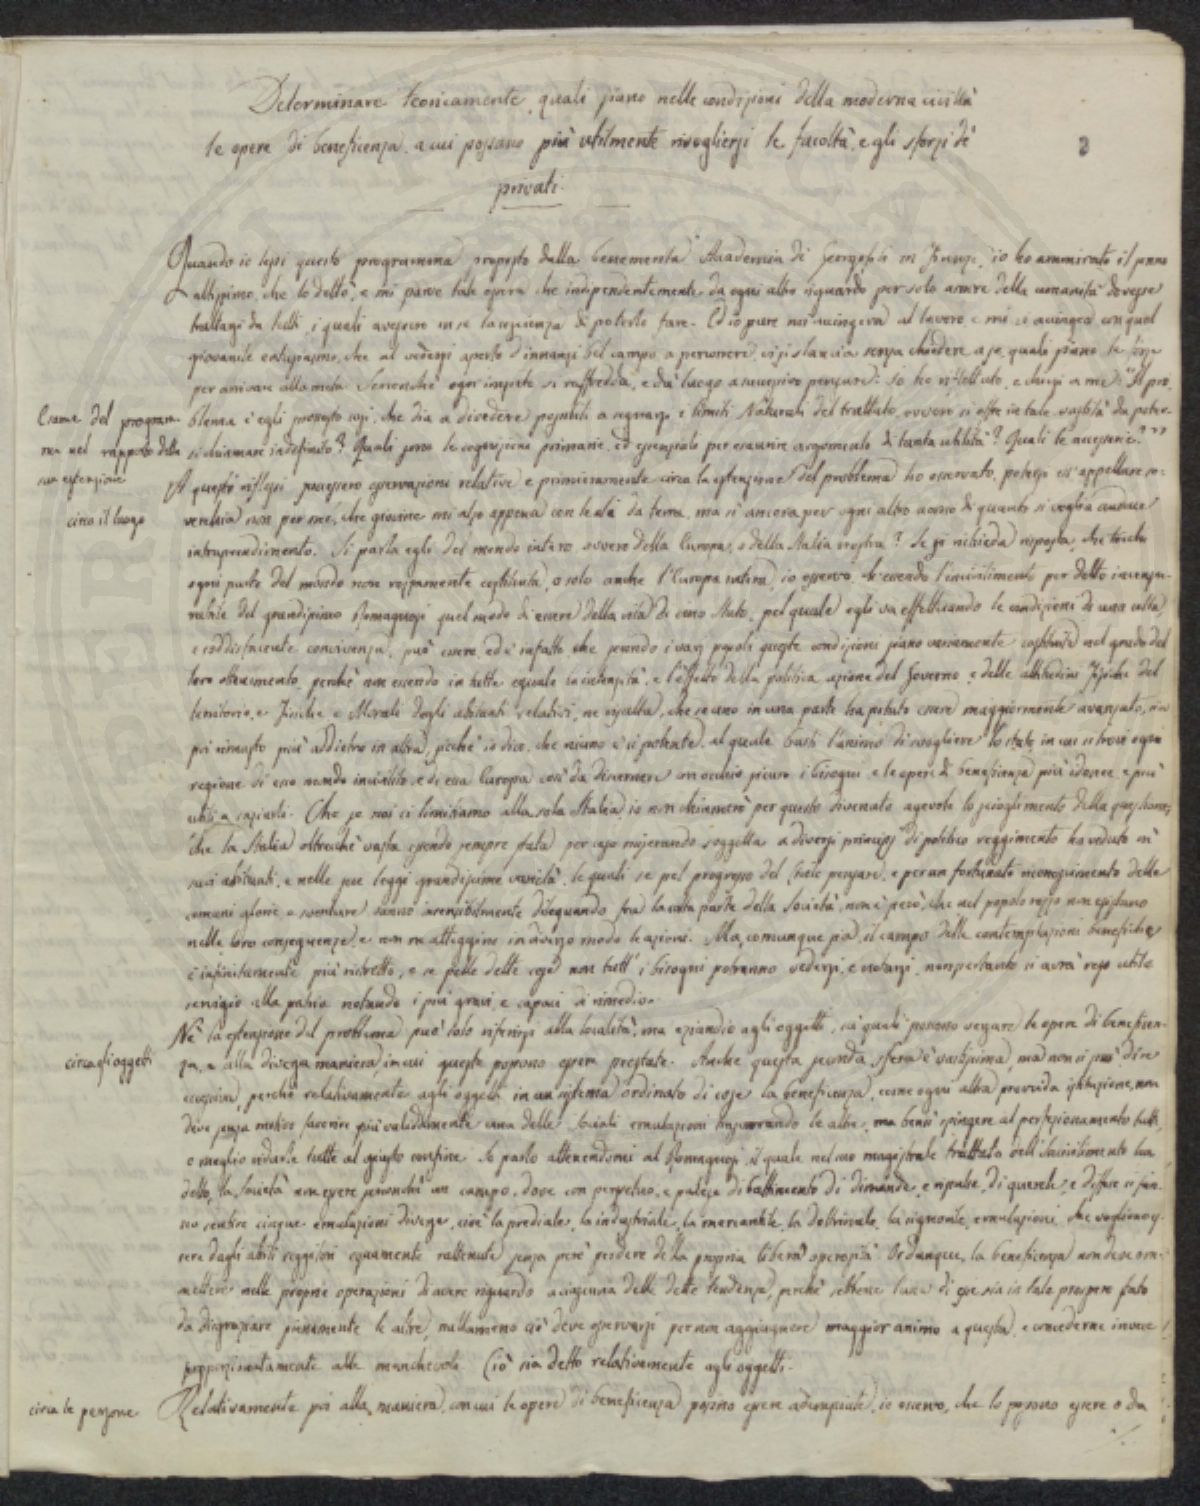 Determinare teoricamente, quali siano nelle condizioni della moderna civiltà
le opere di beneficenza, a cui possano più utilmente rivogliersi le facoltà, e gli sforzi de'
privati.
2
Quando io lessi questo programma proposto dalla benemerita Accademia di Georgofili in Firenze, io ho ammirato il senno
altissimo, che lo dettò, e mi parve tale opera che indipendentemente da ogni altro riguardo per solo amore della umanità dovesse
trattarsi da tutti, i quali avessero in se la coscienza di poterlo fare. Ed io pure mi accingeva al lavoro e mi ci accingea con quel
giovanile entusiasmo, che al vedersi aperto d'innanzi bel campo a percorrere ci si slancia senza chiedere a se, quali siano le forze
per arrivare alla meta. Sennonchè ogni impeto si raffredda, e dà luogo a successivo pensare: io ho riflettuto, e chiesi a me: "Il pro-
Esame del program-
blema è egli proposto così, che dia a divedere possibili a segnarsi i limiti naturali del trattato, ovvero si offre in tale vastità da poter-
ma nel rapporto della
si chiamare indefinito? Quali sono le cognizioni primarie, ed essenziali per esaurire argomento di tanta utilità? Quali le accessorie?"
sua estensione
A questi riflessi successero osservazioni relative e primieramente circa la estensione del problema ho osservato, potersi essa appellare so-
circa il luogo
verchia non per me, che giovine mi alzo appena con le ali da terra, ma sì ancora per ogni altro uomo di quanto si voglia audace
intraprendimento. Si parla egli del mondo intero ovvero della Europa, o della Italia nostra? Se si richieda risposta, che tocchi
ogni parte del mondo non rozzamente costituita, o solo anche l'Europa intera, io osservo che essendo l'incivilimento per detto incensu-
rabile del grandissimo Romagnosi quel modo di essere della vita di uno Stato, pel quale egli va effettuando le condizioni di una culta
e soddisfacente convivenza, può essere, ed è infatto, che secondo i varj popoli queste condizioni siano variamente costituite nel grado del
loro ottenimento, perchè non essendo in tutte eguale la intensità, e l'effetto della politica azione del Governo, e delle attitudini fisiche del
territorio, e Fisiche e Morali degli abitanti relativi, ne risulta, che se uno in una parte ha potuto essere maggiormente avanzato, sia
poi rimasto più addietro in altra, sicchè io dico, che niuno è sì potente, al quale basti l'animo di svogliere lo stato, in cui si trovi ogni
regione di esso mondo incivilito, e di essa Europa così da discernere con occhio sicuro i bisogni, e le opere di beneficenza più idonee, e più
utili a saziarli. Che se noi ci limitiamo alla sola Italia, io non chiamerò per questo divenuto agevole lo scioglimento della questione,
che la Italia oltrecchè vasta essendo sempre stata per caso miserando soggetta a diversi principj di politico reggimento ha veduto ne'
suoi abitanti, e nelle sue leggi grandissime varietà, le quali se pel progresso del retto pensare, e per un fortunato ricongiungimento delle
comuni glorie, e sventure vanno insensibilmente dileguando fra la colta parte della Società, non è però, che nel popolo rozzo non esistano
nelle loro conseguenze, e non ne atteggino in diverso modo le azioni. Ma, comunque sia, il campo delle contemplazioni benefiche
è infinitamente più ristretto, e se pelle dette cose non tutt' i bisogni potranno vedersi, e notarsi, nonpertanto si avrà reso utile
servigio alla patria notando i più gravi, e capaci di rimedio.
Nè la estensione del problema può solo riferirsi alla località, ma eziandio agli oggetti, su' quali possono versare le opere di beneficen-
circa gli oggetti
za, e alla diversa maniera, in cui queste possono essere prestate. Anche questa seconda sfera è vastissima, ma non si può dire
eccessiva, perchè relativamente agli oggetti in un sistema ordinato di cose la beneficenza, come ogni altra provvida istituzione, non
deve senza motivo favorire più validamente una delle sociali emulazioni trascurando le altre, ma bensì spingere al perfezionamento tutte,
o meglio ridurle tutte al giusto confine. Io parlo attenendomi al Romagnosi, il quale nel suo magistrale trattato dell'Incivilimento ha
detto, la Società non essere sennonchè un campo, dove con perpetuo, e palese dibattimento di dimande, e repulse, di querele, e difese si fan-
no sentire cinque emulazioni diverse, cioè la prediale, la industriale, la mercantile, la dottrinale, la signorile, emulazioni, che vogliono es-
sere dagli abili reggitori equamente rattenute senza però perdere della propria libera operosità. Ordunque, la beneficenza non deve om-
mettere nelle proprie operazioni di avere riguardo a ciascuna delle dette tendenze, perchè sebbene l'una di esse sia in tale prospero stato
da disgraziare pienamente le altre, nullameno ciò deve osservarsi per non aggiugnere maggior animo a questa, e concederne invece
proporzionatamente alle manchevoli. Ciò sia detto relativamente agli oggetti.
circa le persone
Relativamente poi alla maniera, con cui le opere di beneficenza possono essere adempiute, io osservo, che lo possono essere o da